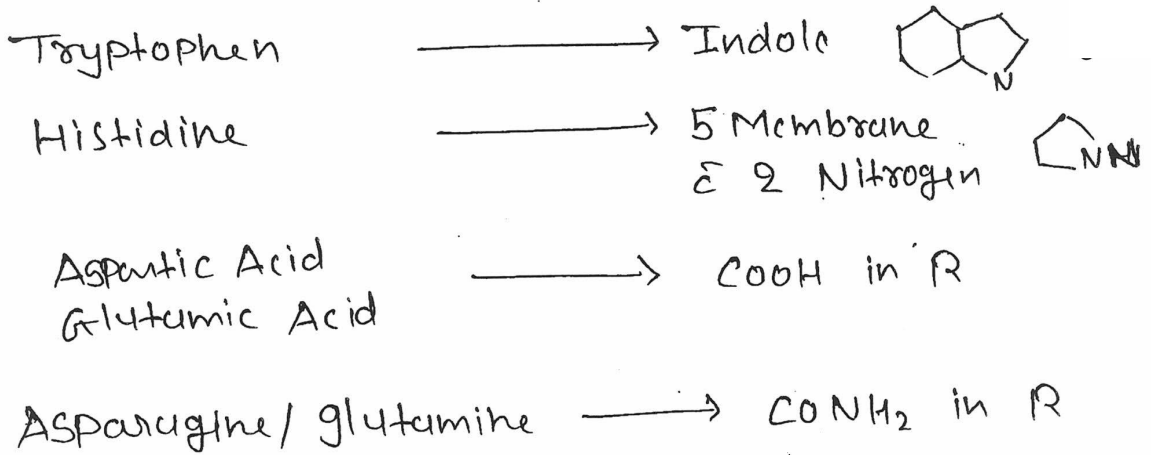 Tryptophen → Indole N
Histidine → 5 Membrane
c̄ 2 Nitrogen NN
Aspartic Acid → COOH in R
Glutamic Acid
Asparagine/glutamine → CONH₂ in R